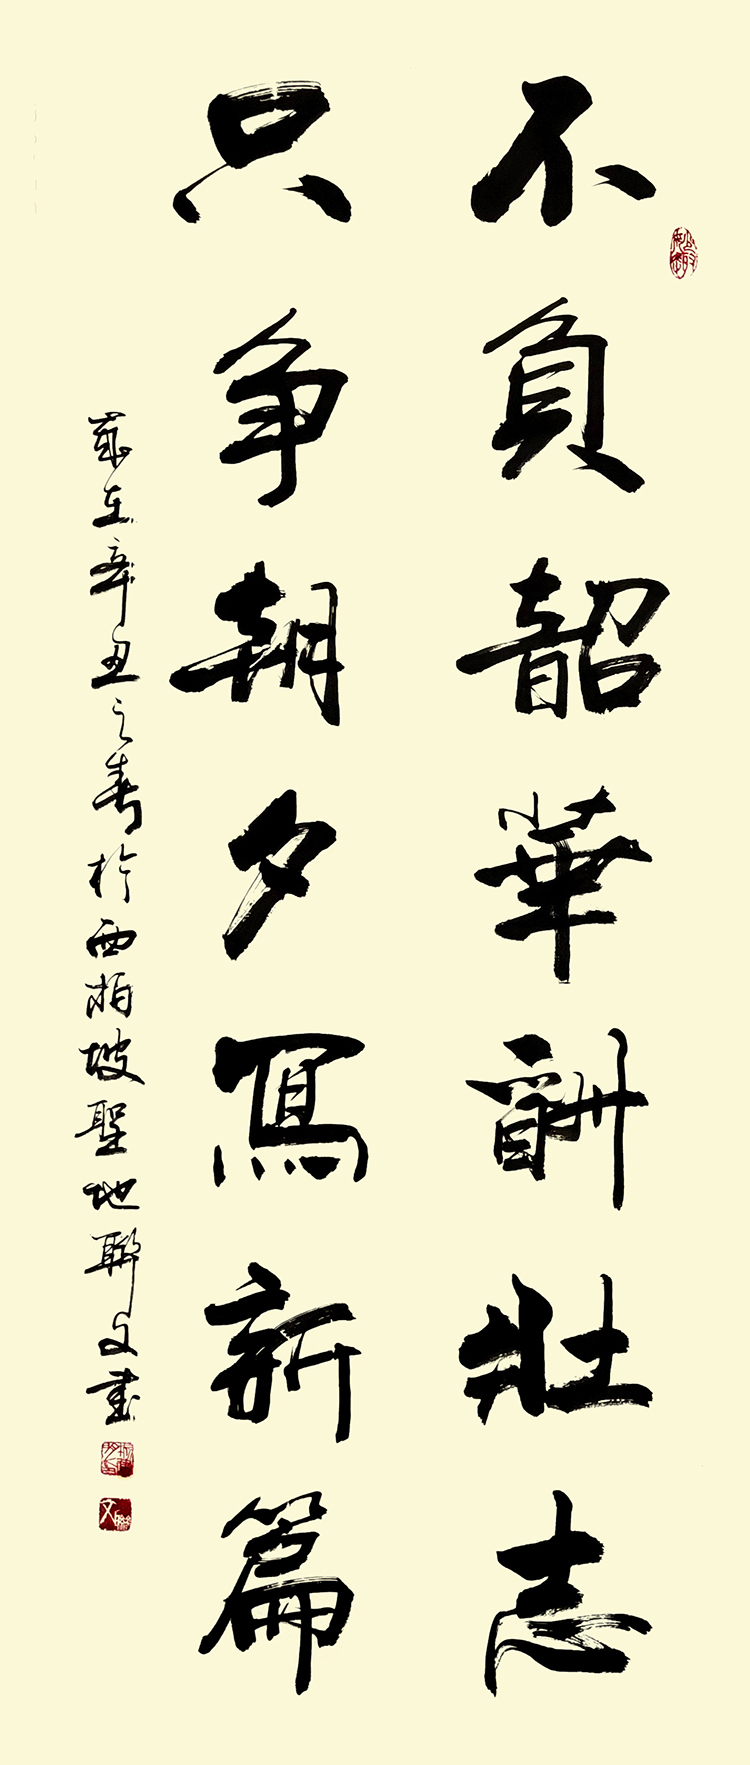 不負韶華酬壯志
只争朝夕寫新篇
歲在辛丑之春於西柏坡聖地聯文書